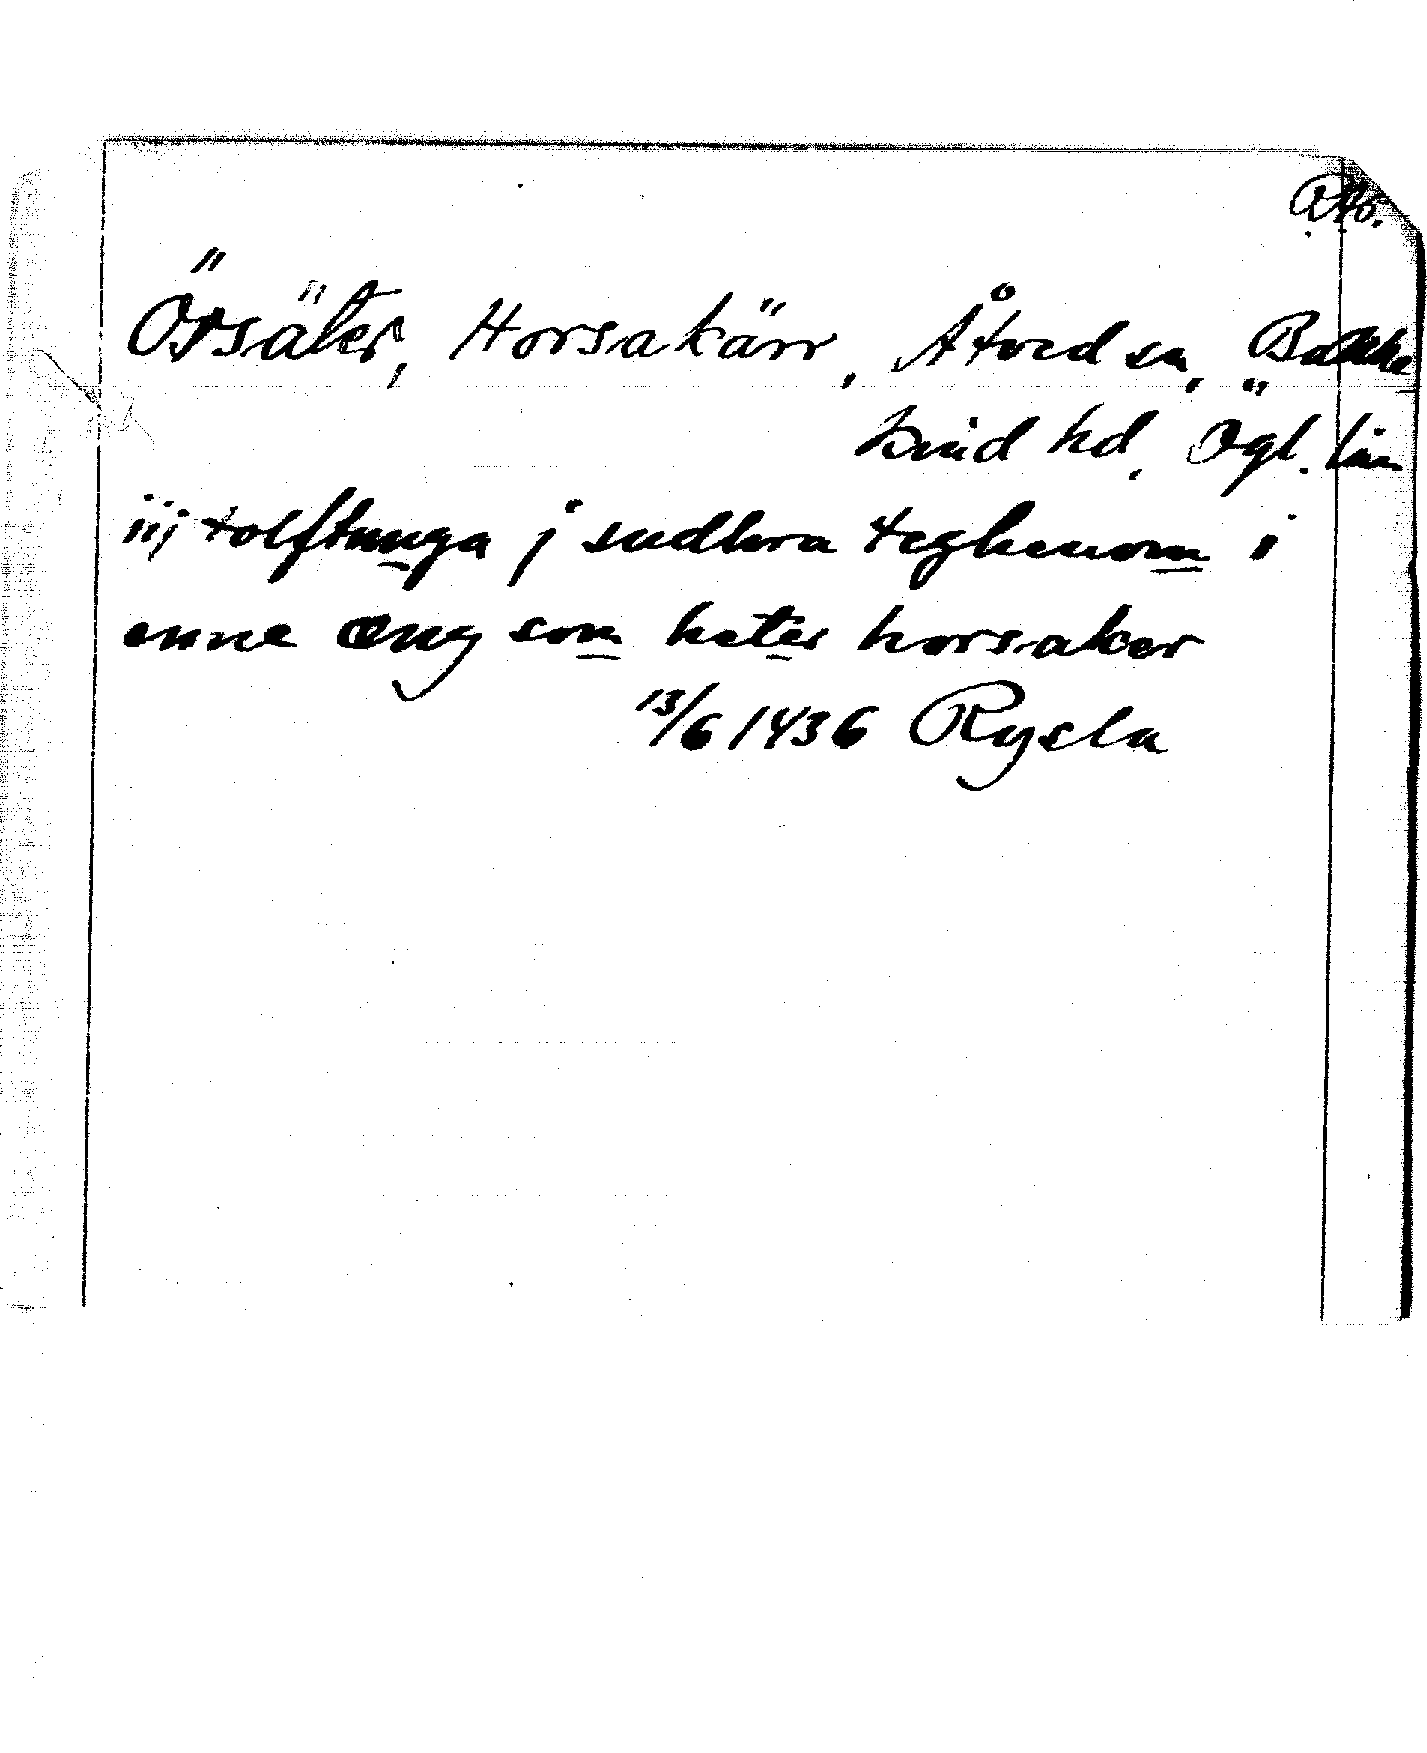 RAp.
Örsäter, Horsakärr, Åtved sn, Bankekind hd, Ögl. län
iij tolftunga j sudhra teghenom i
enne æng som heter horsaker
13/6 1436 Rysla